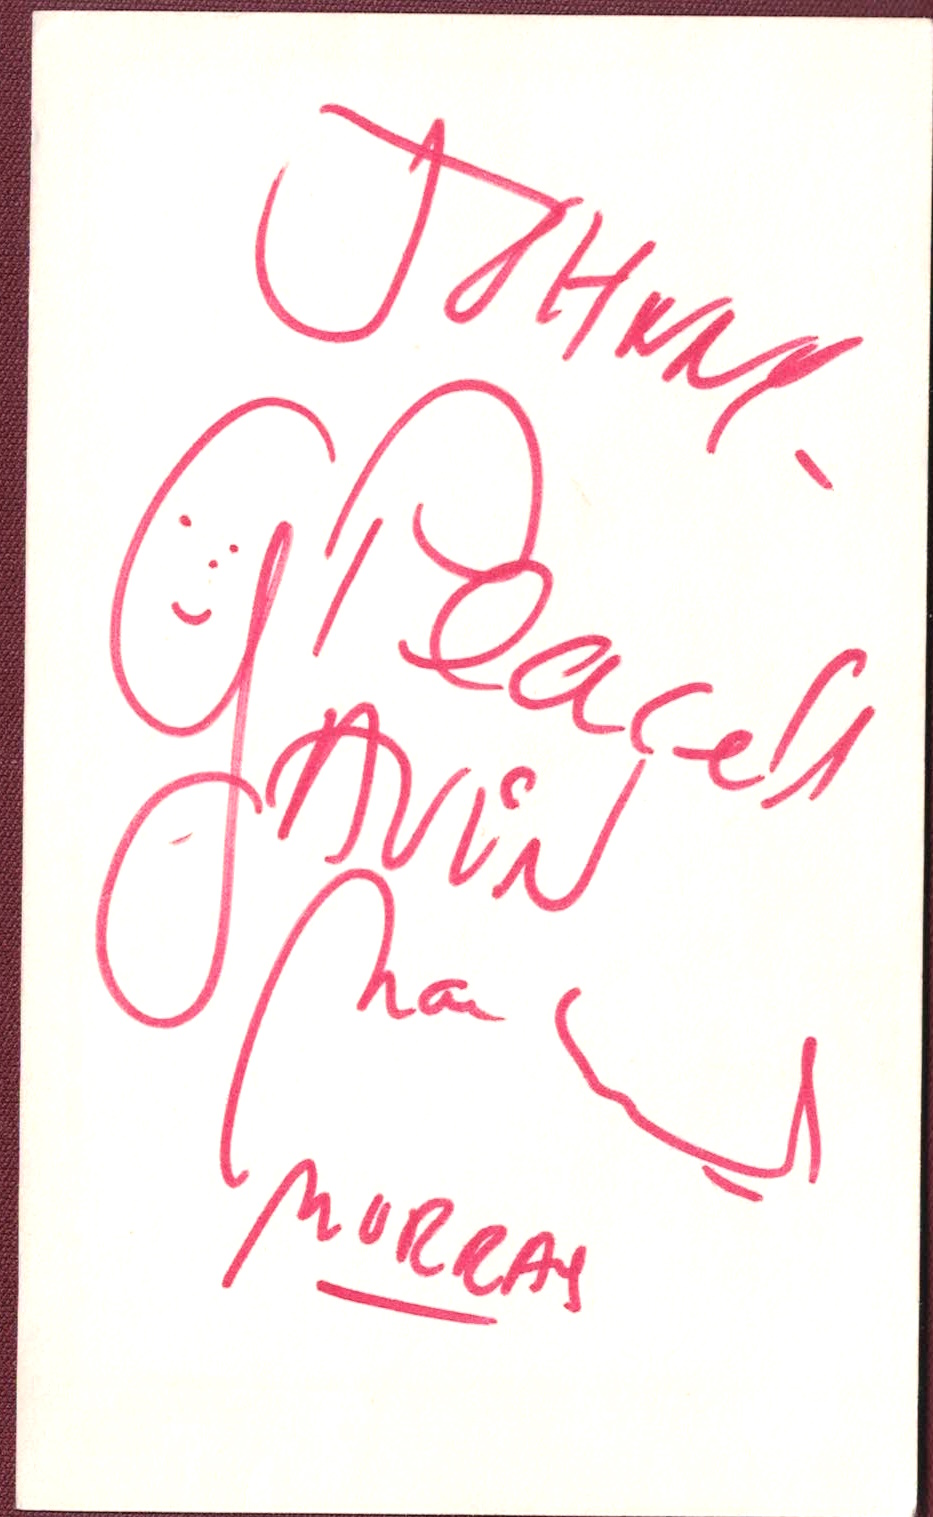 JOHNNY -
Peace!!
GAVIN
Mac
MURRAY